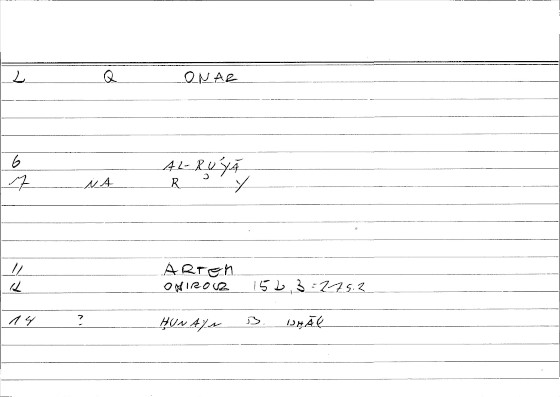 L Q ONAR
6 AL-RU'YĀ
7 NA R ʾ Y
11 ARTEM
12 ONIROCR 152,3 = 275.2
14 ? ḤUNAYN B. ISḤĀQ